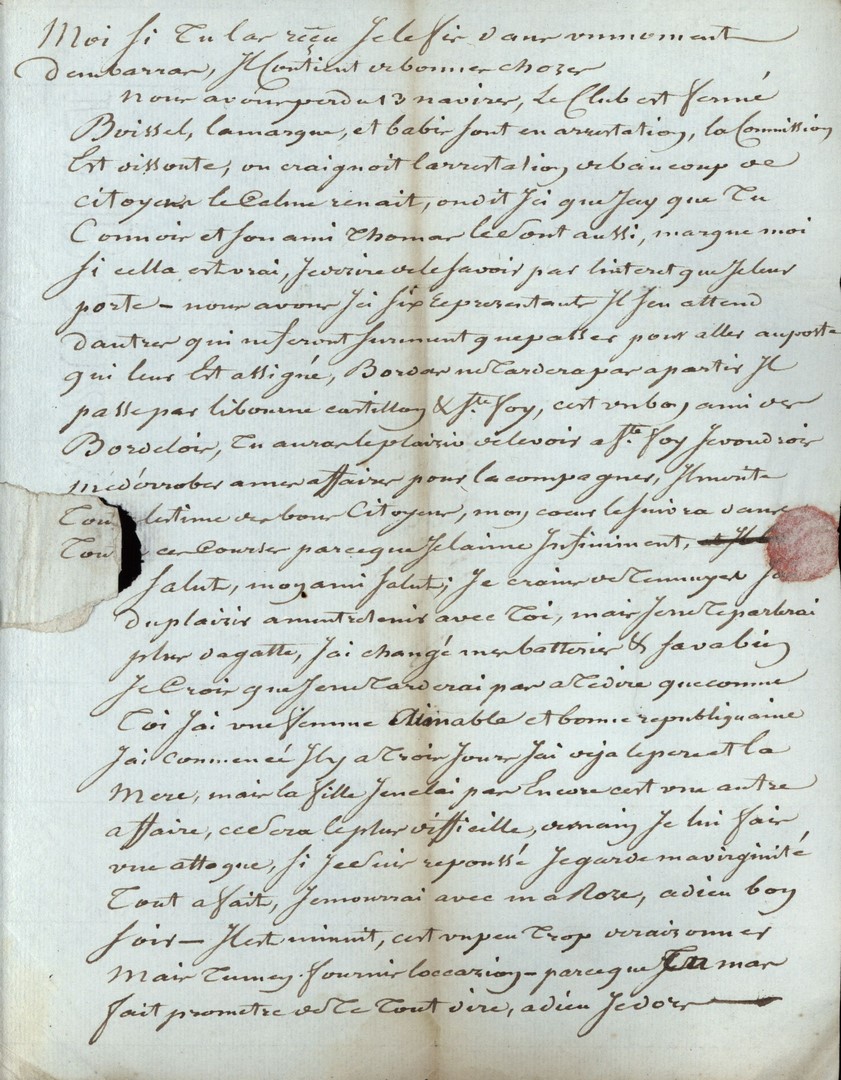 Moi si Tu las reçeu Je le fis dans un moment
dembarras, Il Contient de bonnes chozes
nous avons perdu 13 navires, Le Club est fermé
Boissel, lamarque, et babis sont en arrestation, la Commission
Est dissoute, on craignoit larrestation de baucoup de
citoyens le Calme renait, on dit Ici que Jay que Tu
Connois et son ami Thomas le sont aussi, marque moi
si cella est vrai, Je dezire de le savoir par linteret que Je leur
porte – nous avons Ici six Representants Il sen attend
dautres qui ne feront surement que passer pour aller au poste
qui leur Est assigné, Bordas ne Tardera pas a partir Il
passe par libourne castillon & Ste foy, cest un bon ami des
Bordelois, Tu auras le plaisir de le voir a Ste foy Je voudrois
me dérrober a mes affaires pour lacompagner, Il mérite
Tou lestime des bons Citoyens, mon coeur le suivra dans
Tou ces Courses parce que Je laime Infiniment,
Salut, mon ami Salut; Je crains de Tennuyer Jai
du plaisir a mentretenir avec Toi, mais Je ne Te parlerai
plus dagatte, Jai changé mes batteries & sa va bien
Je Crois que Je ne Tarderai pas a Te dire que comme
Toi Jai une femme Aimable et bonne republiquaine
Jai commencé Il y a Trois Jours Jai deja le pere et la
Mere, mais la fille Je ne lai pas Encore cest une autre
affaire, ce sera le plus difficille, demain Je lui fais
une attaque, si Je suis repoussé Je garde ma virginité
Tout a fait, Je mourrai avec ma Roze, adieu bon
soir – Il est minuit, cest un peu Trop deraizonner
Mais Tu men fournis loccazion – parce que Tu mas
fait prometre de Te Tout dire, adieu Je dors